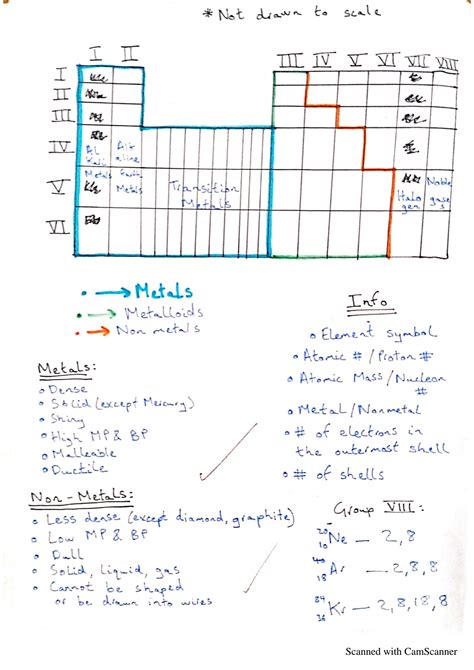 *Not drawn to scale
I II
III IV V VI VII VIII
I
II
III
IV
V
VI
Al Kali Metals
Alk aline Earth Metals
Transition Metals
Halo gen
Noble gases
• → Metals
• → Metalloids
• → Non metals
Metals:
o Dense
o Solid (except Mercury)
o Shiny
o High MP & BP
o Malleable
o Ductile
Non-Metals:
o Less dense (except diamond, graphite)
o Low MP & BP
o Dull
o Solid, liquid, gas
o Cannot be shaped
or be drawn into wires
Info
o Element symbol
o Atomic # / Proton #
o Atomic Mass / Nucleon
#
o Metal / Nonmetal
o # of electrons in
the outermost shell
o # of shells
Group VIII:
20 10 Ne — 2,8
40 18 Ar — 2,8,8
84 36 Kr — 2,8,18,8
Scanned with CamScanner